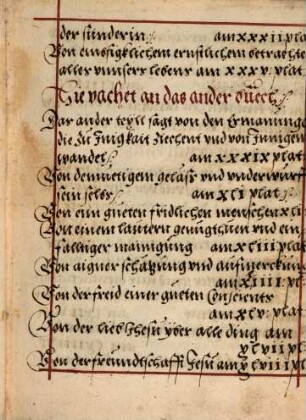 der sunderin am xxxii pla
Von embsigklichem ernstlichem betrachte
aller unnsers lebens am xxxv plat
Hie vachet an das ander buech
Das ander teyll sagt von den Ermanunge
die zu Innigkait ziechent und von Innigen
wandel am xxxix plat
Von demuetigem gelass und underwurff
sein selbs am xli plat
Von eim gueten fridlichen menschen xli
Von einem lautern gemuethum und ein
faltiger mainigung am xliii plat
Von aigner schatzung und aufmerckung
am xliiii pl
Von der freid einer gueten Conscientz
am xlv plat
Von der lieb Jhesu yber alle ding am
xlvii pl
Von der freundtschafft Jesu am xlviii pl